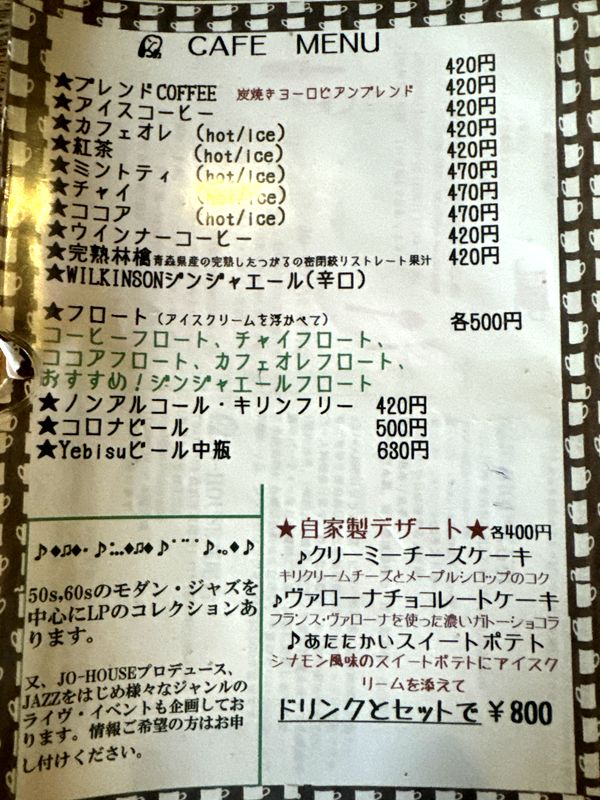 CAFE MENU
★ブレンドCOFFEE 炭焼きヨーロピアンブレンド 420円
★アイスコーヒー 420円
★カフェオレ (hot/ice) 420円
★紅茶 (hot/ice) 420円
★ミントティ (hot/ice) 420円
★チャイ (hot/ice) 470円
★ココア (hot/ice) 470円
★ウインナーコーヒー 470円
★完熟林檎 青森県産の完熟したつがるの密閉絞りストレート果汁 420円
★WILKINSONジンジャエール(辛口) 420円
★フロート (アイスクリームを浮かべて) 各500円
コーヒーフロート、チャイフロート、
ココアフロート、カフェオレフロート、
おすすめ!ジンジャエールフロート
★ノンアルコール・キリンフリー 420円
★コロナビール 500円
★Yebisuビール中瓶 630円
50s,60sのモダン・ジャズを
中心にLPのコレクションあ
ります。
又、JO-HOUSEプロデュース、
JAZZをはじめ様々なジャンルの
ライヴ・イベントも企画してお
ります。情報ご希望の方はお申
し付けください。
★自家製デザート★各400円
♪クリーミーチーズケーキ
キリクリームチーズとメープルシロップのコク
♪ヴァローナチョコレートケーキ
フランス・ヴァローナを使った濃いガトーショコラ
♪あたたかいスイートポテト
シナモン風味のスイートポテトにアイスク
リームを添えて
ドリンクとセットで¥800